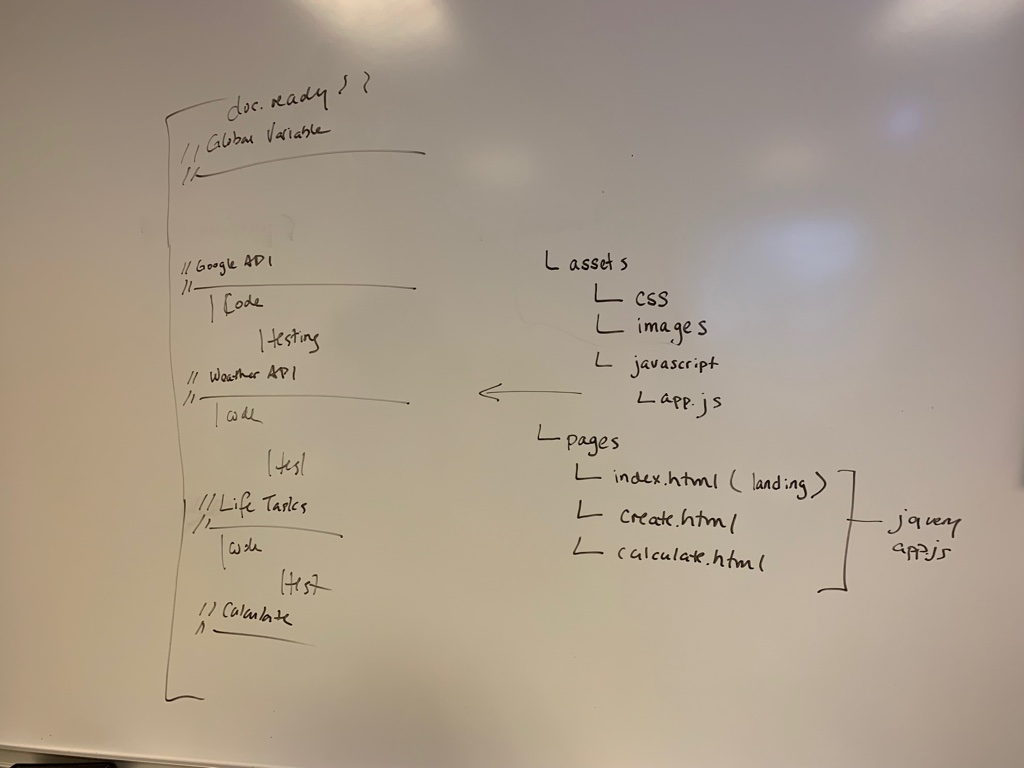 doc.ready { }
// Global Variable
//
// Google API
//
Code
testing
// Weather API
//
code
test
// Life Tasks
//
code
test
// Calculate
//
assets
css
images
javascript
app.js
pages
index.html (landing)
create.html
calculate.html
jquery
app.js